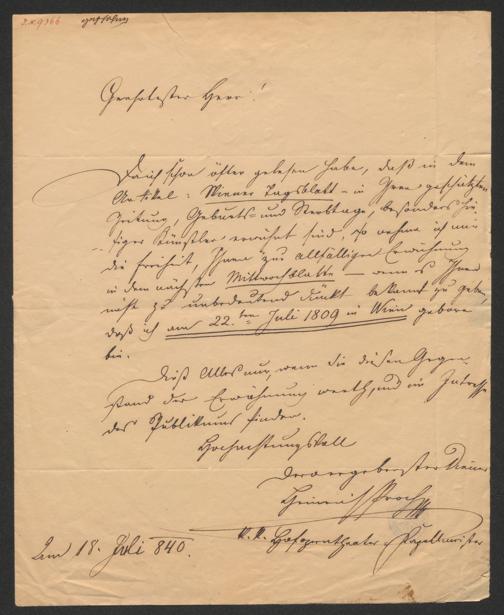 Geehrtester Herr!
Da ich schon öfter gelesen habe, daß in dem
Artikel: Wiener Tagsblatt – in Ihrer geschätzten
Zeitung, Geburts- und Sterbtage, besonders hie-
siger Künstler erwähnt sind, so nehme ich mir
die Freiheit, Ihnen zur allfälligen Erwähnung
in dem nächsten Mittwochblatte – wenn es Ihnen
nicht zu unbedeutend dünkt bekannt zu geben,
daß ich am 22.ten Juli 1809 in Wien geboren
bin.
Dieß Alles nur, wenn Sie diesen Gegen-
stand der Erwähnung werth, und im Interesse
des Publikums finden.
Hochachtungsvoll
Dero ergebenster Diener
Heinrich Proch
k. k. Hofoperntheater Kapellmeister
Am 18. Juli 840.